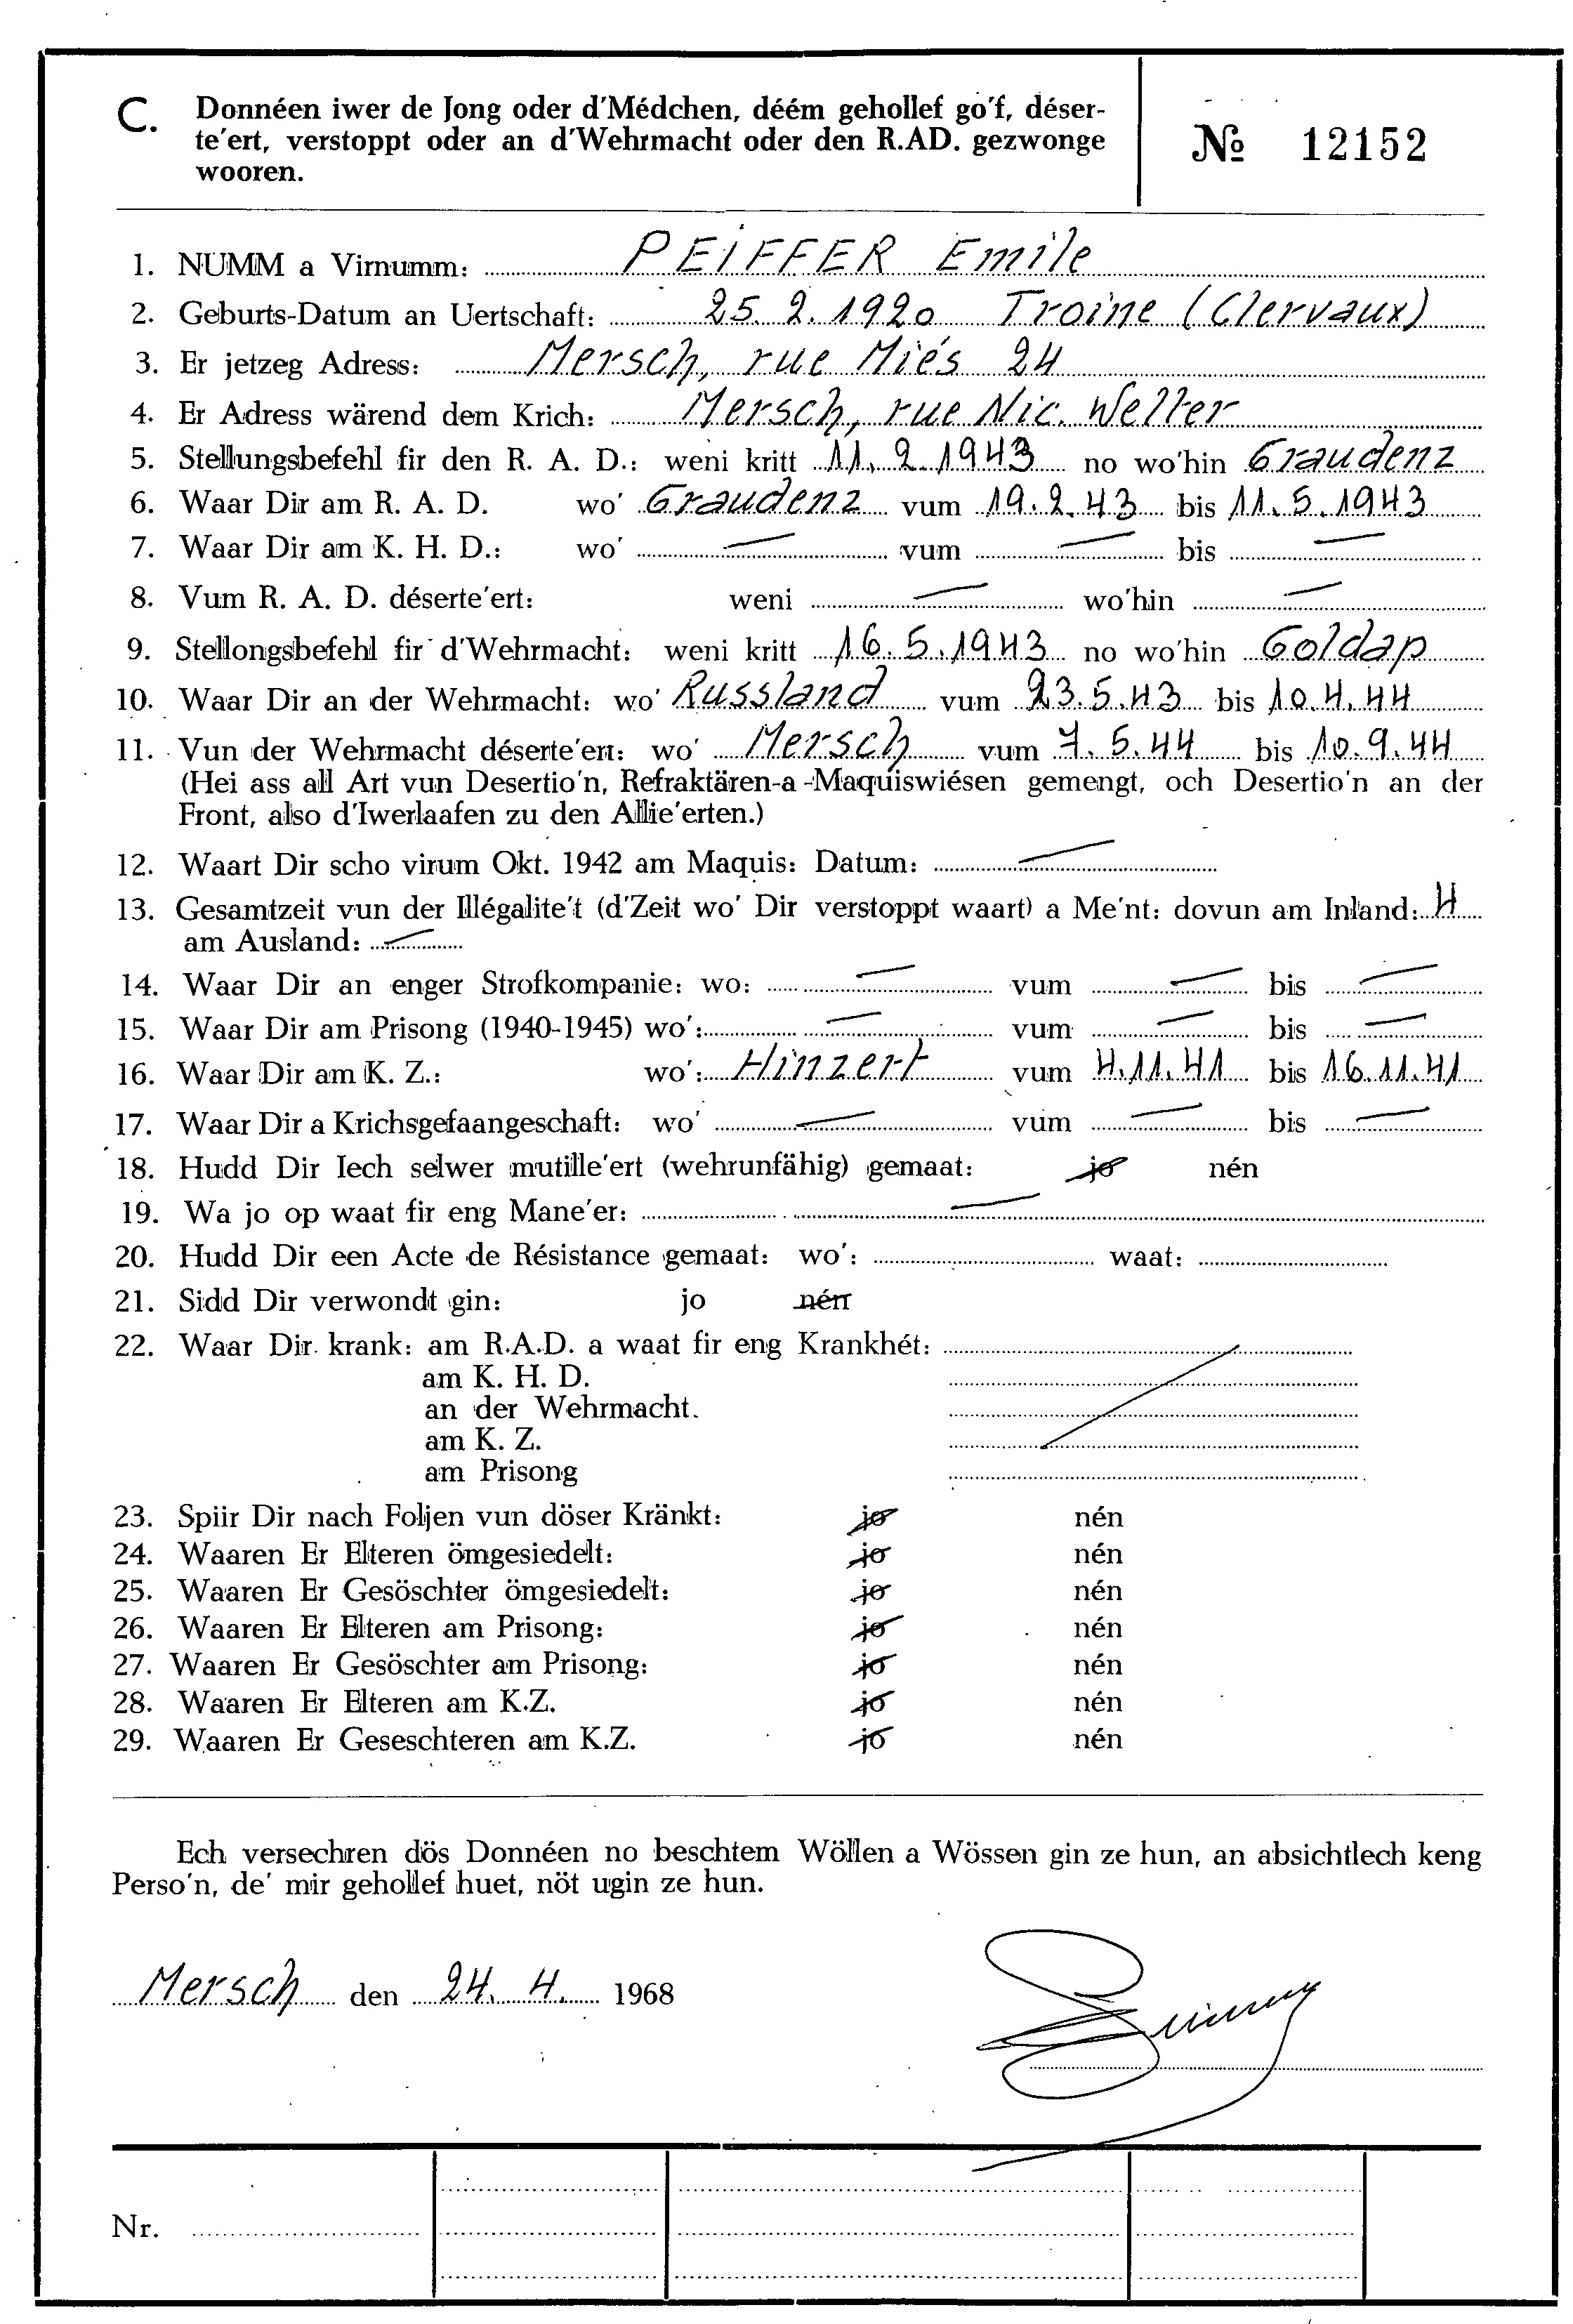 C. Donnéen iwer de Jong oder d'Médchen, déém gehollef go'f, déser-
te'ert, verstoppt oder an d'Wehrmacht oder den R.AD. gezwonge
wooren.
№ 12152
1. NUMM a Virnumm: PEIFFER Emile
2. Geburts-Datum an Uertschaft: 25. 2. 1920 Troine (Clervaux)
3. Er jetzeg Adress: Mersch, rue Miés 24
4. Er Adress wärend dem Krich: Mersch, rue Nic. Welter
5. Stellungsbefehl fir den R. A. D.: weni kritt 11. 2. 1943 no wo'hin Graudenz
6. Waar Dir am R. A. D. wo' Graudenz vum 19. 2. 43 bis 11. 5. 1943
7. Waar Dir am K. H. D.: wo' — vum — bis —
8. Vum R. A. D. déserte'ert: weni — wo'hin —
9. Stellongsbefehl fir d'Wehrmacht: weni kritt 16. 5. 1943 no wo'hin Goldap
10. Waar Dir an der Wehrmacht: wo' Russland vum 23. 5. 43 bis 10. 4. 44
11. Vun der Wehrmacht déserte'ert: wo' Mersch vum 7. 5. 44 bis 10. 9. 44
(Hei ass all Art vun Desertio'n, Refraktären-a-Maquiswiésen gemengt, och Desertio'n an der
Front, also d'Iwerlaafen zu den Allie'erten.)
12. Waart Dir scho virum Okt. 1942 am Maquis: Datum: —
13. Gesamtzeit vun der Illégalite't (d'Zeit wo' Dir verstoppt waart) a Me'nt: dovun am Inland: 4
am Ausland: —
14. Waar Dir an enger Strofkompanie: wo: — vum — bis —
15. Waar Dir am Prisong (1940-1945) wo': — vum — bis —
16. Waar Dir am K. Z.: wo': Hinzert vum 4. 11. 41 bis 16. 11. 41
17. Waar Dir a Krichsgefaangeschaft: wo' — vum — bis —
18. Hudd Dir Iech selwer mutille'ert (wehrunfähig) gemaat: jo nén
19. Wa jo op waat fir eng Mane'er: —
20. Hudd Dir een Acte de Résistance gemaat: wo': waat:
21. Sidd Dir verwondt gin: jo nén
22. Waar Dir krank: am R.A.D. a waat fir eng Krankhét:
am K. H. D.
an der Wehrmacht.
am K. Z.
am Prisong
23. Spiir Dir nach Foljen vun döser Kränkt: jo nén
24. Waaren Er Elteren ömgesiedelt: jo nén
25. Waaren Er Gesöschter ömgesiedelt: jo nén
26. Waaren Er Elteren am Prisong: jo nén
27. Waaren Er Gesöschter am Prisong: jo nén
28. Waaren Er Elteren am K.Z. jo nén
29. Waaren Er Geseschteren am K.Z. jo nén
Ech versechren dös Donnéen no beschtem Wöllen a Wössen gin ze hun, an absichtlech keng
Perso'n, de' mir gehollef huet, nöt ugin ze hun.
Mersch den 24. 4. 1968
Nr.